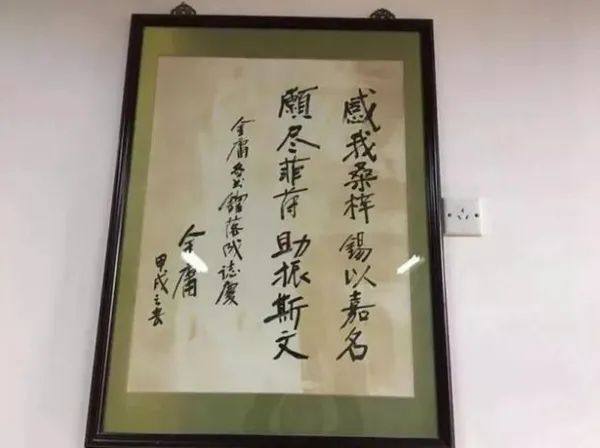 感我桑梓 锡以嘉名
願尽菲荷 助振斯文
金庸图书馆落成誌慶
金庸
甲戌之春